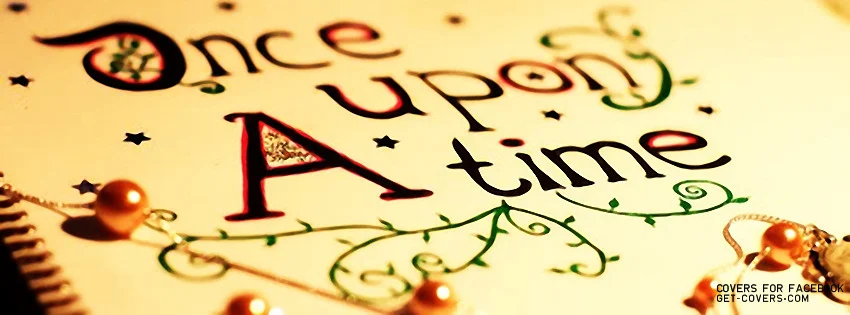 Once
upon
A time
COVERS FOR FACEBOOK
GET-COVERS.COM